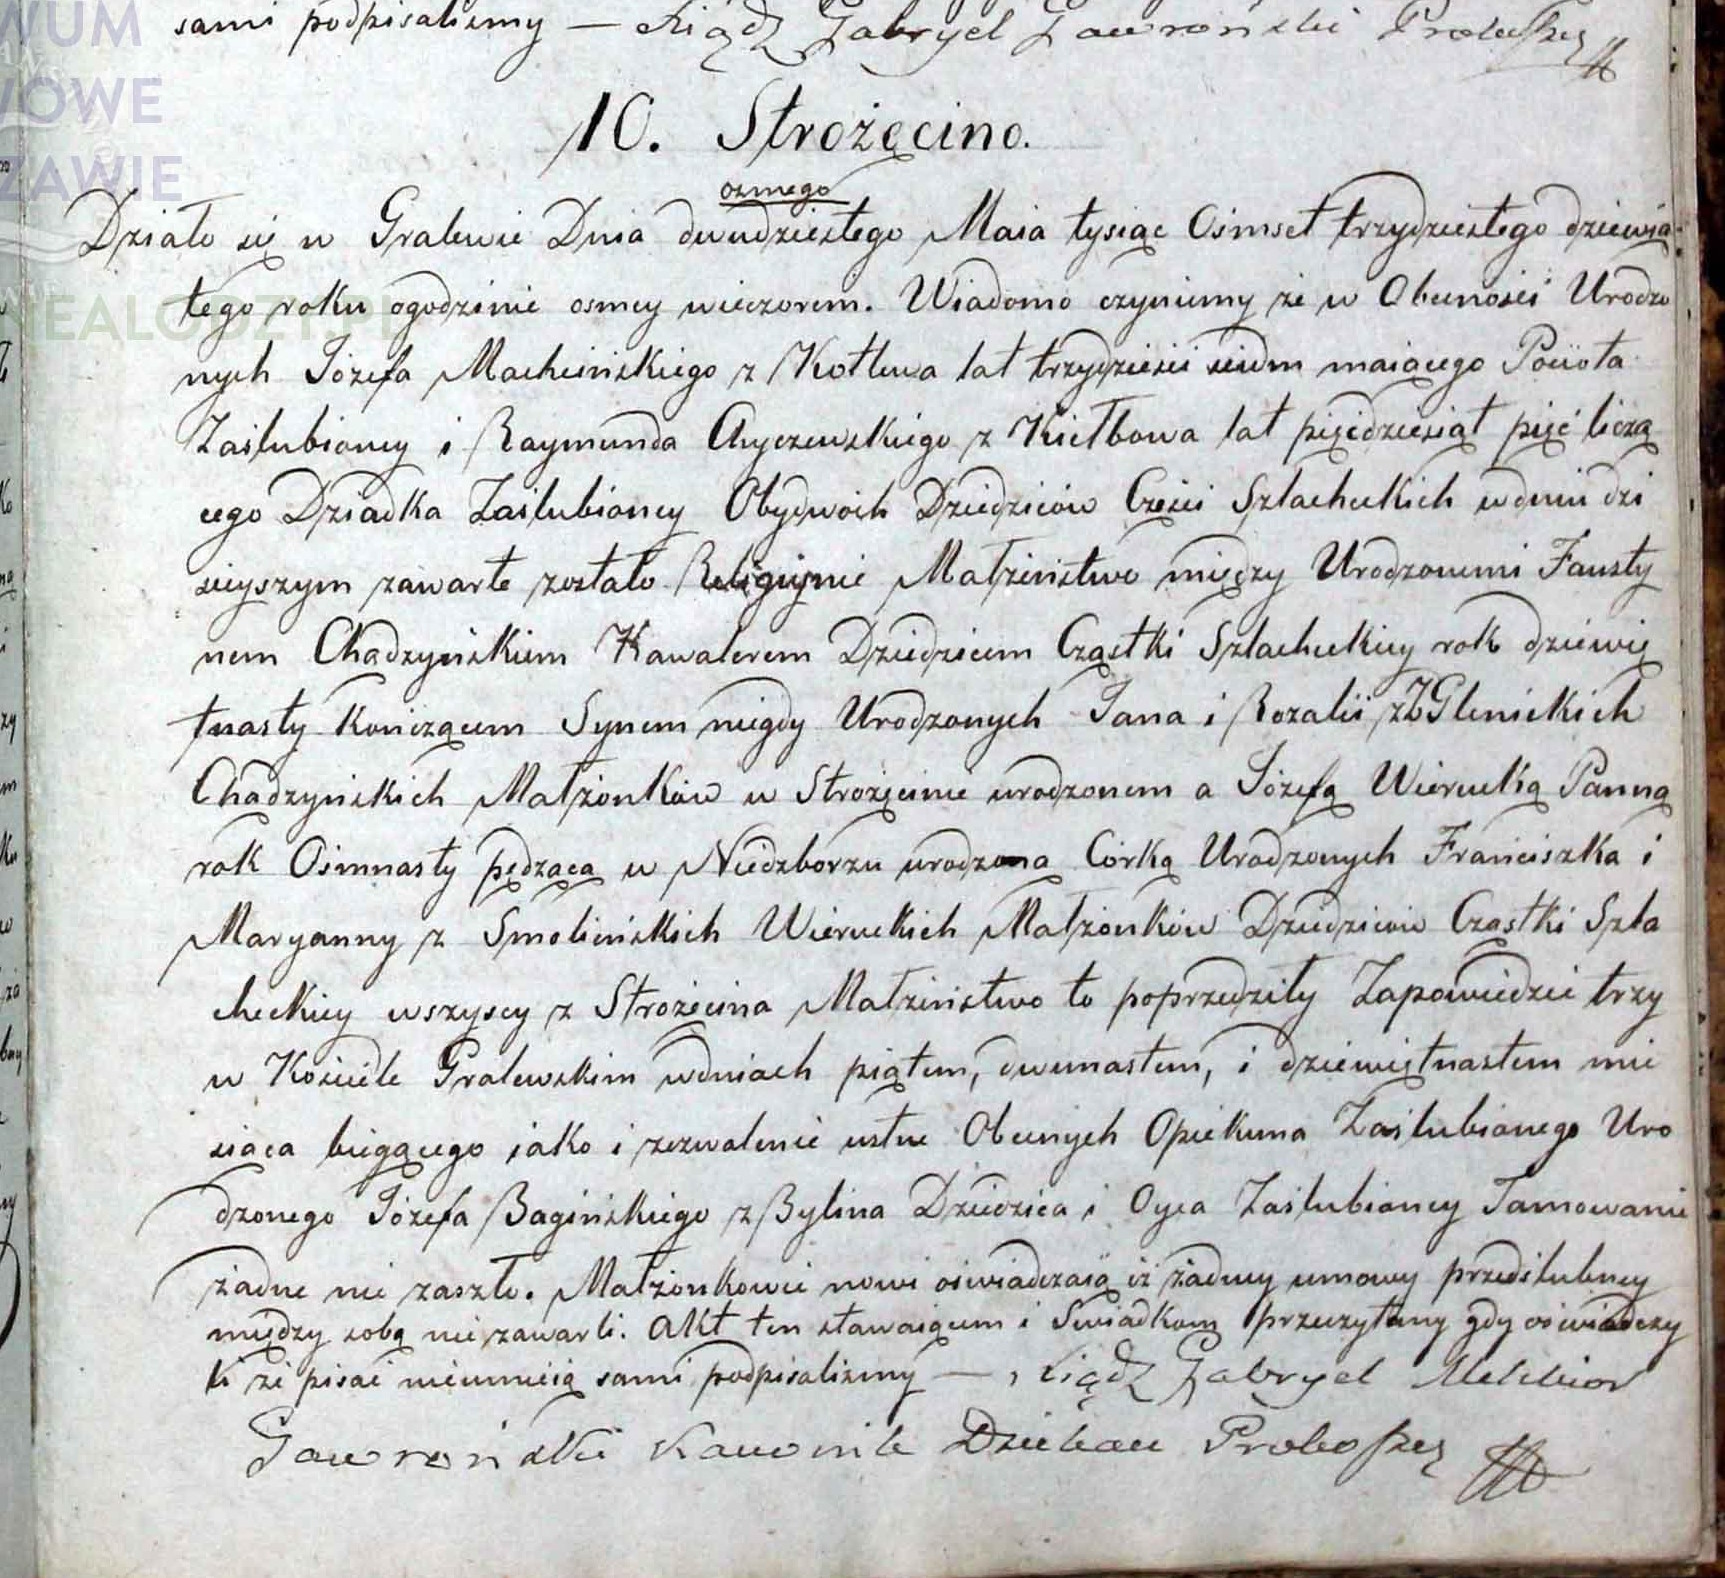 WUM
WOWE
ZAWIE
NEALODZY.PL
sami podpisalismy — Xiądz Gabryel Gawroński Proboszcz
10. Strożęcino.
osmego
Działo się w Gralewie Dnia dwudziestego Maia tysiąc Ośmset trzydziestego dziewią
tego roku ogodzinie osmey wieczorem. Wiadomo czyniemy że w Obecności Urodzo
nych Józefa Machcińskiego z Kotlewa lat trzydzieści siedm maiącego Pociota
Zaślubioney i Raymunda Chyczewskiego z Kiełbowa lat pięćdziesiąt pięć liczą
cego Dziadka Zaślubioney Obydwóch Dziedziców Części Szlacheckich w dniu dzi
sieyszym zawarte zostało Religijnie Małżeństwo między Urodzonemi Fausty
nem Chadzyńskiem Kawalerem Dziedzicem Cząstki Szlacheckiey rok dziewię
tnasty kończącem Synem niegdy Urodzonych Jana i Rozalii z Zglenickich
Chadzyńskich Małżonków w Strożęcinie urodzonem a Józefą Wierucką Panną
rok Ośmnasty pędzącą w Niedzborzu urodzona Córką Urodzonych Franciszka i
Maryanny z Smolińskich Wieruckich Małżonków Dziedziców Cząstki Szla
checkiey wszyscy z Strożęcina Małżeństwo to poprzedziły Zapowiedzie trzy
w Kościele Gralewskim wdniach piątem, dwunastem, i dziewiętnastem mie
siąca bieżącego iako i zezwolenie ustne Obecnych Opiekuna Zaślubionego Uro
dzonego Józefa Bagińskiego z Bylina Dziedzica i Oyca Zaślubioney Tamowanie
żadne nie zaszło. Małżonkowie nowi oświadczaią iż żadney umowy przedślubney
między sobą nie zawarli. Akt ten stawaiącem i Swiadkom przeczytany gdy oświadczy
li że pisać nieumieią sami podpisalismy — Xiądz Gabryel Melchior
Gawroński Kanonik Dziekan Proboszcz